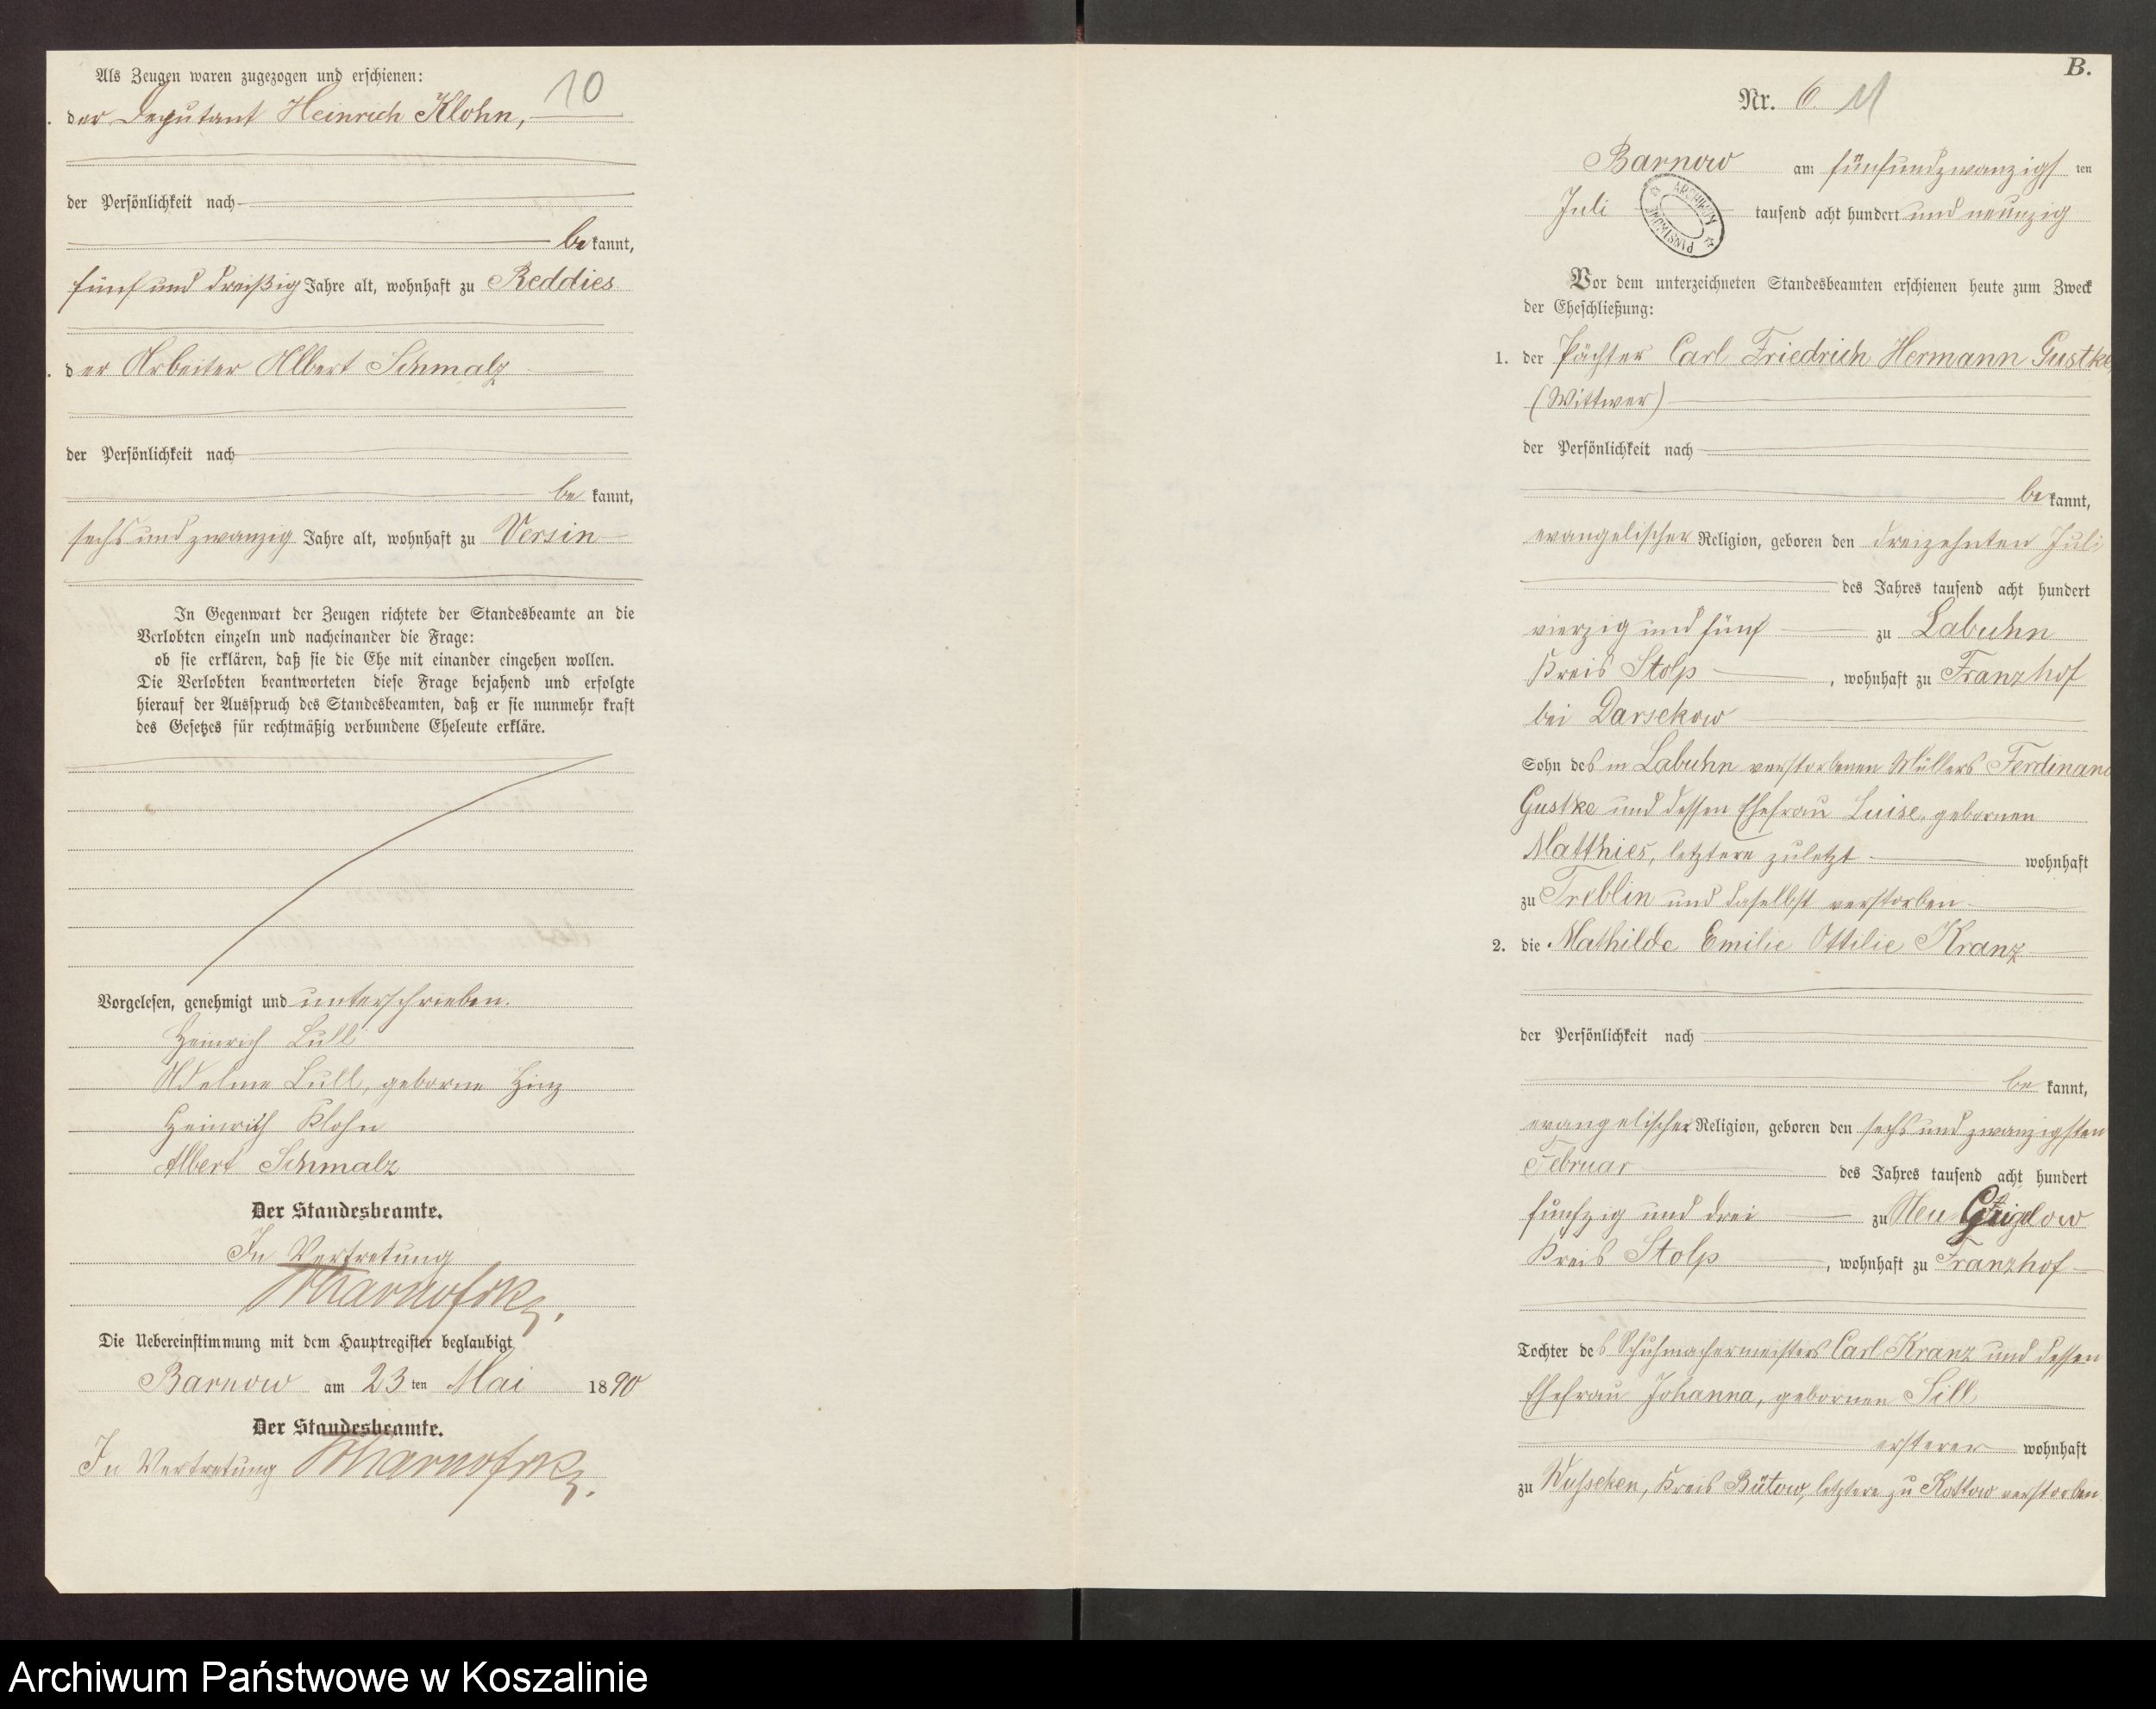 Als Zeugen waren zugezogen und erschienen:
10
der Deputant Heinrich Klohn,
der Persönlichkeit nach
be kannt,
fünf und dreißig Jahre alt, wohnhaft zu Reddies
der Arbeiter Albert Schmalz
der Persönlichkeit nach
be kannt,
sechs und zwanzig Jahre alt, wohnhaft zu Versin
In Gegenwart der Zeugen richtete der Standesbeamte an die
Verlobten einzeln und nacheinander die Frage:
ob sie erklären, daß sie die Ehe mit einander eingehen wollen.
Die Verlobten beantworteten diese Frage bejahend und erfolgte
hierauf der Ausspruch des Standesbeamten, daß er sie nunmehr kraft
des Gesetzes für rechtmäßig verbundene Eheleute erkläre.
Vorgelesen, genehmigt und unterschrieben.
Heinrich Lull
Adeline Lull, geborne Hinz
Heinrich Klohn
Albert Schmalz
Der Standesbeamte.
In Vertretung
Die Uebereinstimmung mit dem Hauptregister beglaubigt
Barnow am 23 ten Mai 1890
Der Standesbeamte.
In Vertretung
B.
Nr. 6. 11
Barnow am fünfundzwanzigsten
Juli tausend acht hundert und neunzig
ARCHIWUM PAŃSTWOWE
Vor dem unterzeichneten Standesbeamten erschienen heute zum Zweck
der Eheschließung:
1. der Pächter Carl Friedrich Hermann Gustke,
(Wittwer)
der Persönlichkeit nach
be kannt,
evangelischer Religion, geboren den dreizehnten Juli
des Jahres tausend acht hundert
vierzig und fünf zu Labuhn
Kreis Stolp, wohnhaft zu Franzhof
bei Darsekow
Sohn des in Labuhn verstorbenen Müllers Ferdinand
Gustke und dessen Ehefrau Luise, gebornen
Matthies, letztere zuletzt wohnhaft
zu Treblin und daselbst verstorben
2. die Mathilde Emilie Ottilie Kranz
der Persönlichkeit nach
be kannt,
evangelischer Religion, geboren den sechs und zwanzigsten
Februar des Jahres tausend acht hundert
fünfzig und drei zu Neu
Kreis Stolp, wohnhaft zu Franzhof
Tochter des Schuhmachermeisters Carl Kranz und dessen
Ehefrau Johanna, gebornen Sill
ersterer wohnhaft
zu Wusseken, Kreis Bütow, letztere zu Kottow verstorben
Archiwum Państwowe w Koszalinie